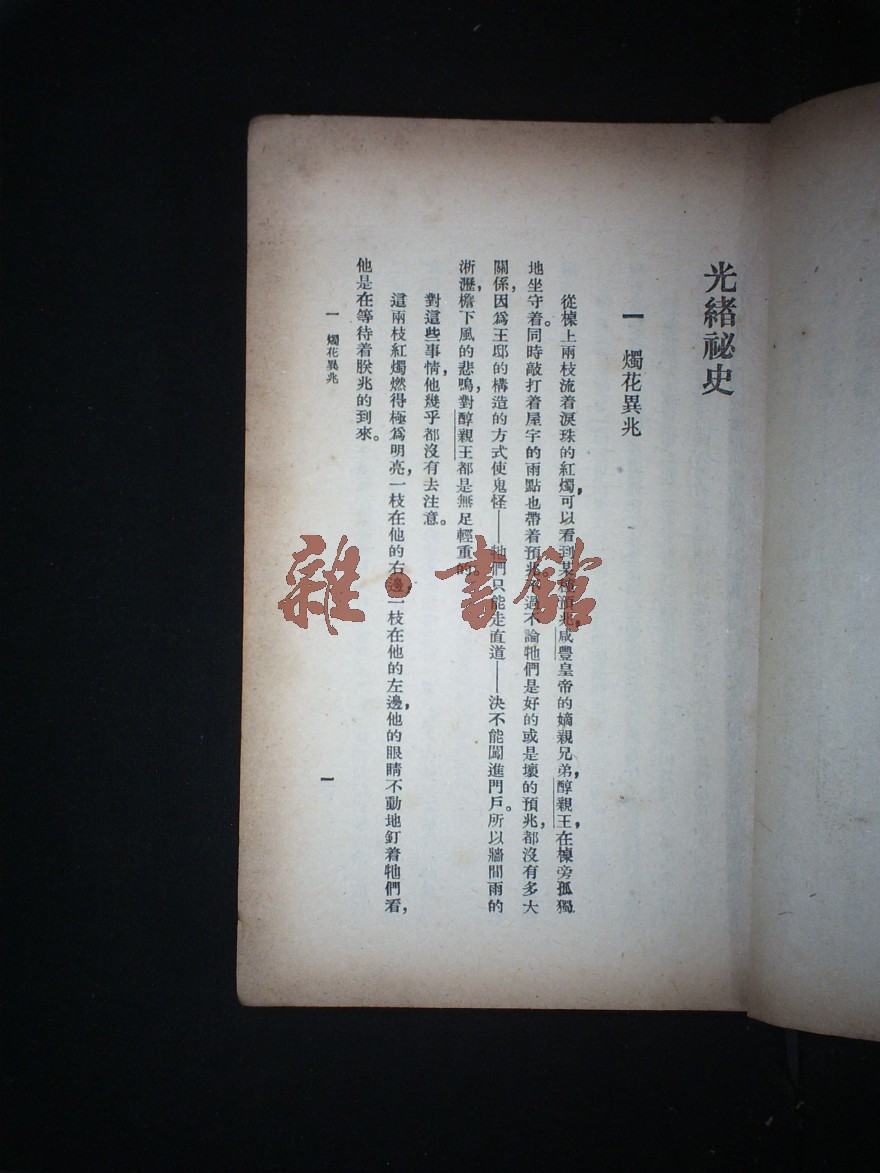 光緒祕史
一 燭花異兆
從棹上兩枝流着淚珠的紅燭，可以看到某種預兆，咸豐皇帝的嫡親兄弟，醇親王，在棹旁孤獨
地坐守着。同時敲打着屋宇的雨點也帶着預兆。不過不論牠們是好的或是壞的預兆，都沒有多大
關係，因爲王邸的構造的方式使鬼怪——牠們只能走直道——決不能闖進門戶。所以牆間雨的
淅瀝，檐下風的悲鳴，對醇親王都是無足輕重的。
對這些事情，他幾乎都沒有去注意。
這兩枝紅燭燃得極爲明亮，一枝在他的右邊，一枝在他的左邊，他的眼睛不動地釘着牠們看，
他是在等待着朕兆的到來。
一 燭花異兆
一
雜·書館